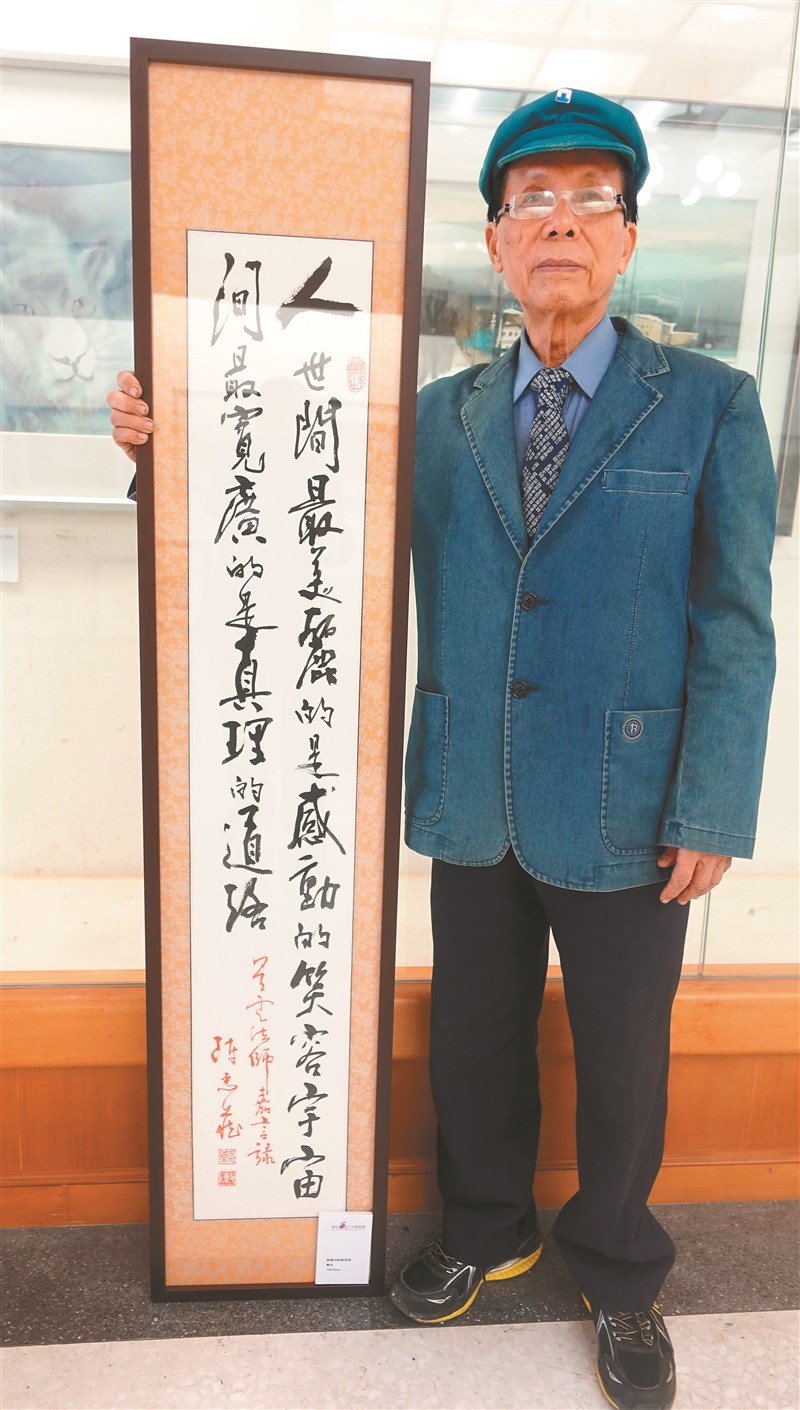 人世間最美麗的是感動的笑容宇宙
間最寬廣的是真理的道路
星雲法師嘉言錄